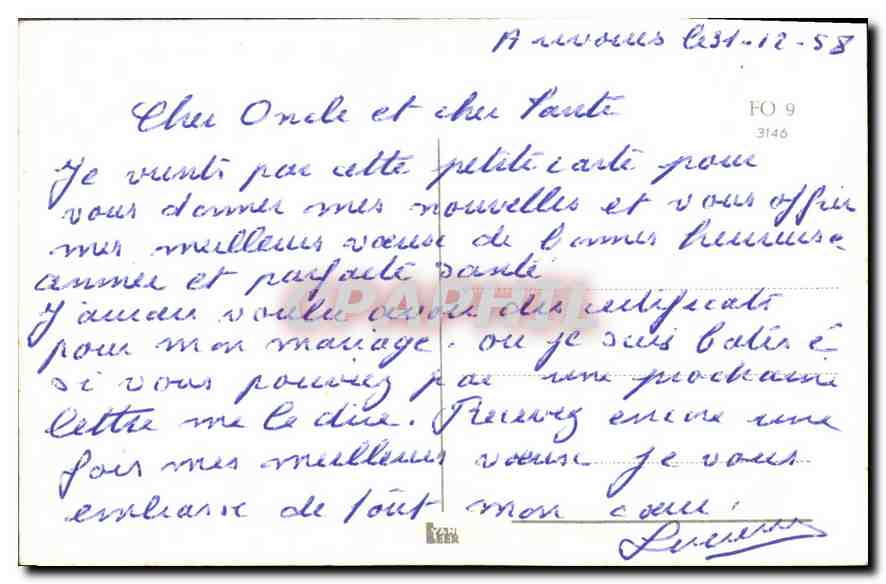 le 31-12-58
Cher Oncle et cher Tante
FO 9
3146
Je vients par cette petite carte pour
vous donner mes nouvelles et vous offrir
mes meilleurs vœux de bonnes heureuse
année et parfaite santé
J'aurau voulu avoir du certificats
pour mon mariage. ou je suis batisé
si vous pouviez par une prochaine
lettre me le dire. Recevez encore une
fois mes meilleurs vœux je vous
embrasse de tout mon cœur.
VAN LEER
CPAPHIL